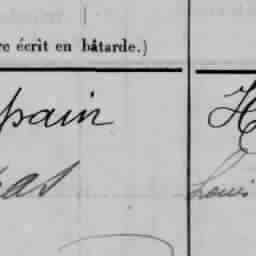 re écrit en bâtarde.)
pain H
as Louis